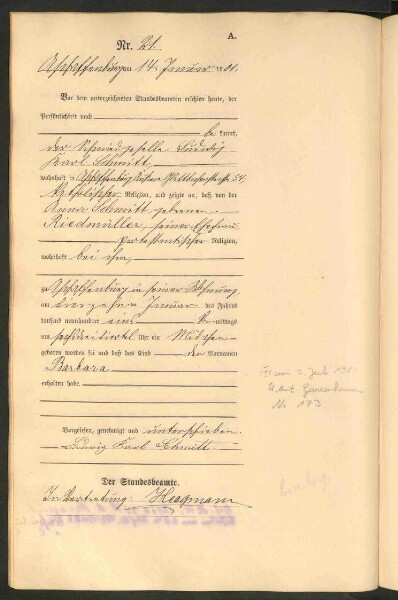 A.
Nr. 21.
Aschaffenburg am 14. Januar 1901.
Vor dem unterzeichneten Standesbeamten erschien heute, der
Persönlichkeit nach
be kannt,
der Schmiedgeselle Ludwig
Karl Schmitt
wohnhaft in Aschaffenburg, 54,
katholischer Religion, und zeigte an, daß von der
Anna Schmitt geborene
Riedmüller, seiner Ehefrau
protestantischer Religion,
wohnhaft bei ihm,
zu Aschaffenburg in seiner Wohnung,
am Januar des Jahres
tausend neunhundert eins Vormittags
um Uhr ein Mädchen
geboren worden sei und daß das Kind den Vornamen
Barbara
erhalten habe.
Vorgelesen, genehmigt und unterschrieben.
Ludwig Karl Schmitt.
Der Standesbeamte.
In Vertretung: Heegmann
Juli
Nr. 173